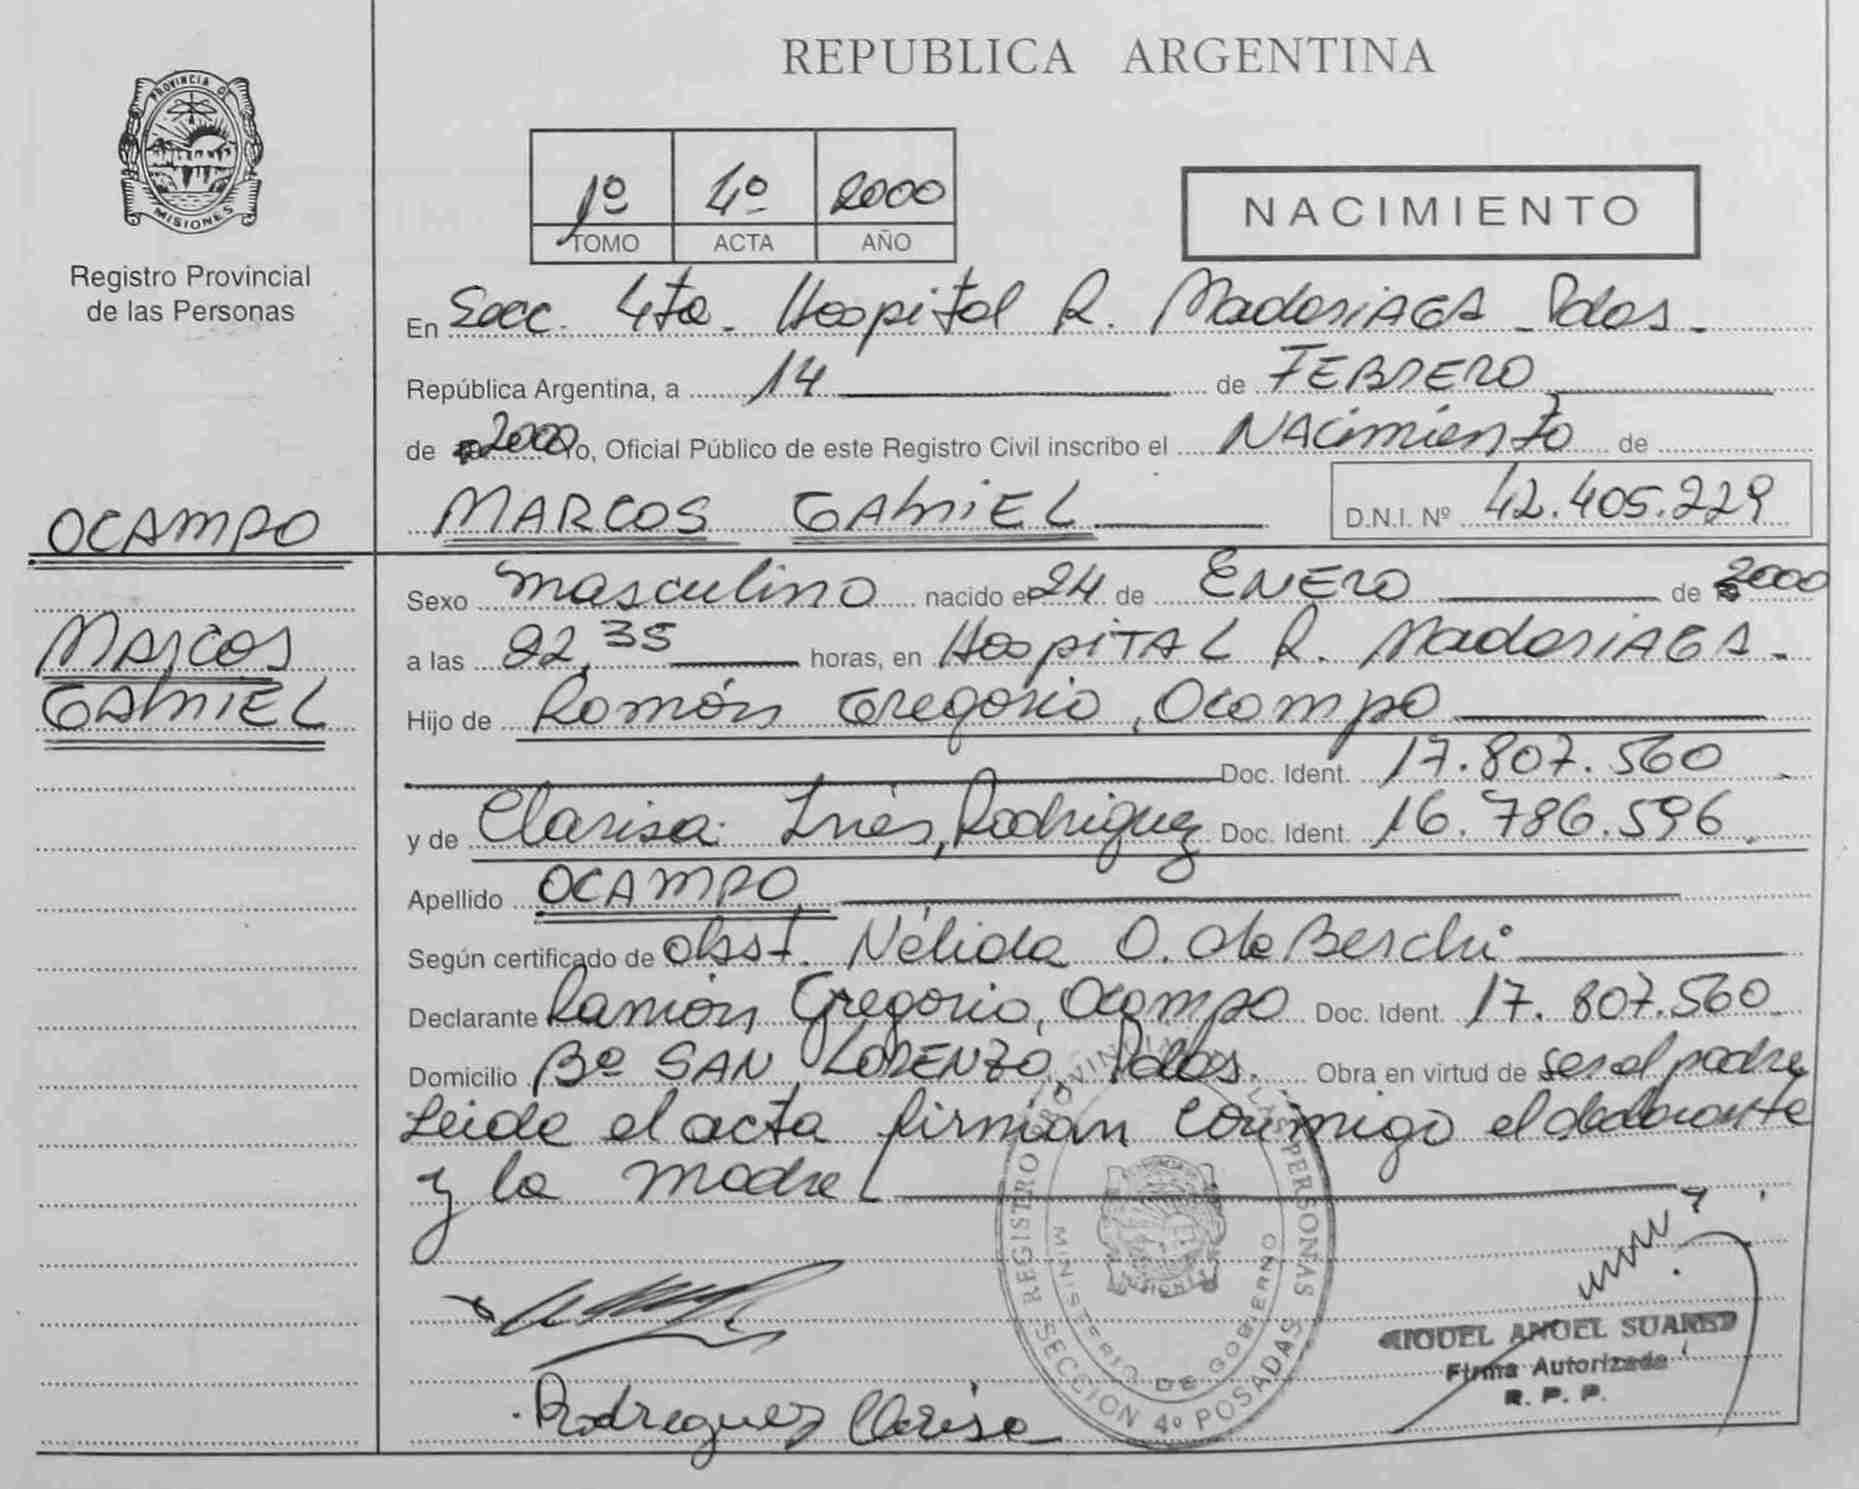 REPUBLICA ARGENTINA
PROVINCIA D
MISIONES
Registro Provincial
de las Personas
1º 4º 2000
TOMO ACTA AÑO
NACIMIENTO
En Secc. 4ta. Hospital R. MadariAGA - Pdas.
República Argentina, a 14 de FEBRERO
de 2000 Yo, Oficial Público de este Registro Civil inscribo el NAcimiento de
OCAMPO
MARCOS GAbriEL D.N.I. Nº 42.405.229
Sexo masculino nacido el 24 de ENERO de 2000
MARCOS
GAbriEL
a las 22,35 horas, en HospiTAL R. MadariAGA.
Hijo de Ramón Gregorio, Ocampo
Doc. Ident. 17.807.560
y de Clarisa Inés, Rodriguez Doc. Ident. 16.786.596
Apellido OCAMPO
Según certificado de obst. Nélida O. de Beschi
Declarante Ramón Gregorio, Ocampo Doc. Ident. 17.807.560
Domicilio Bº SAN LORENZO, Pdas. Obra en virtud de ser el padre
Leida el acta firman conmigo el declarante
y la madre
REGISTRO PROVINCIAL LAS PERSONAS
MINISTERIO DE GOBIERNO
SECCION 4º POSADAS
MIGUEL ANGEL SUAREZ
Firma Autorizada
R. P. P.
Rodreguez Clarisa